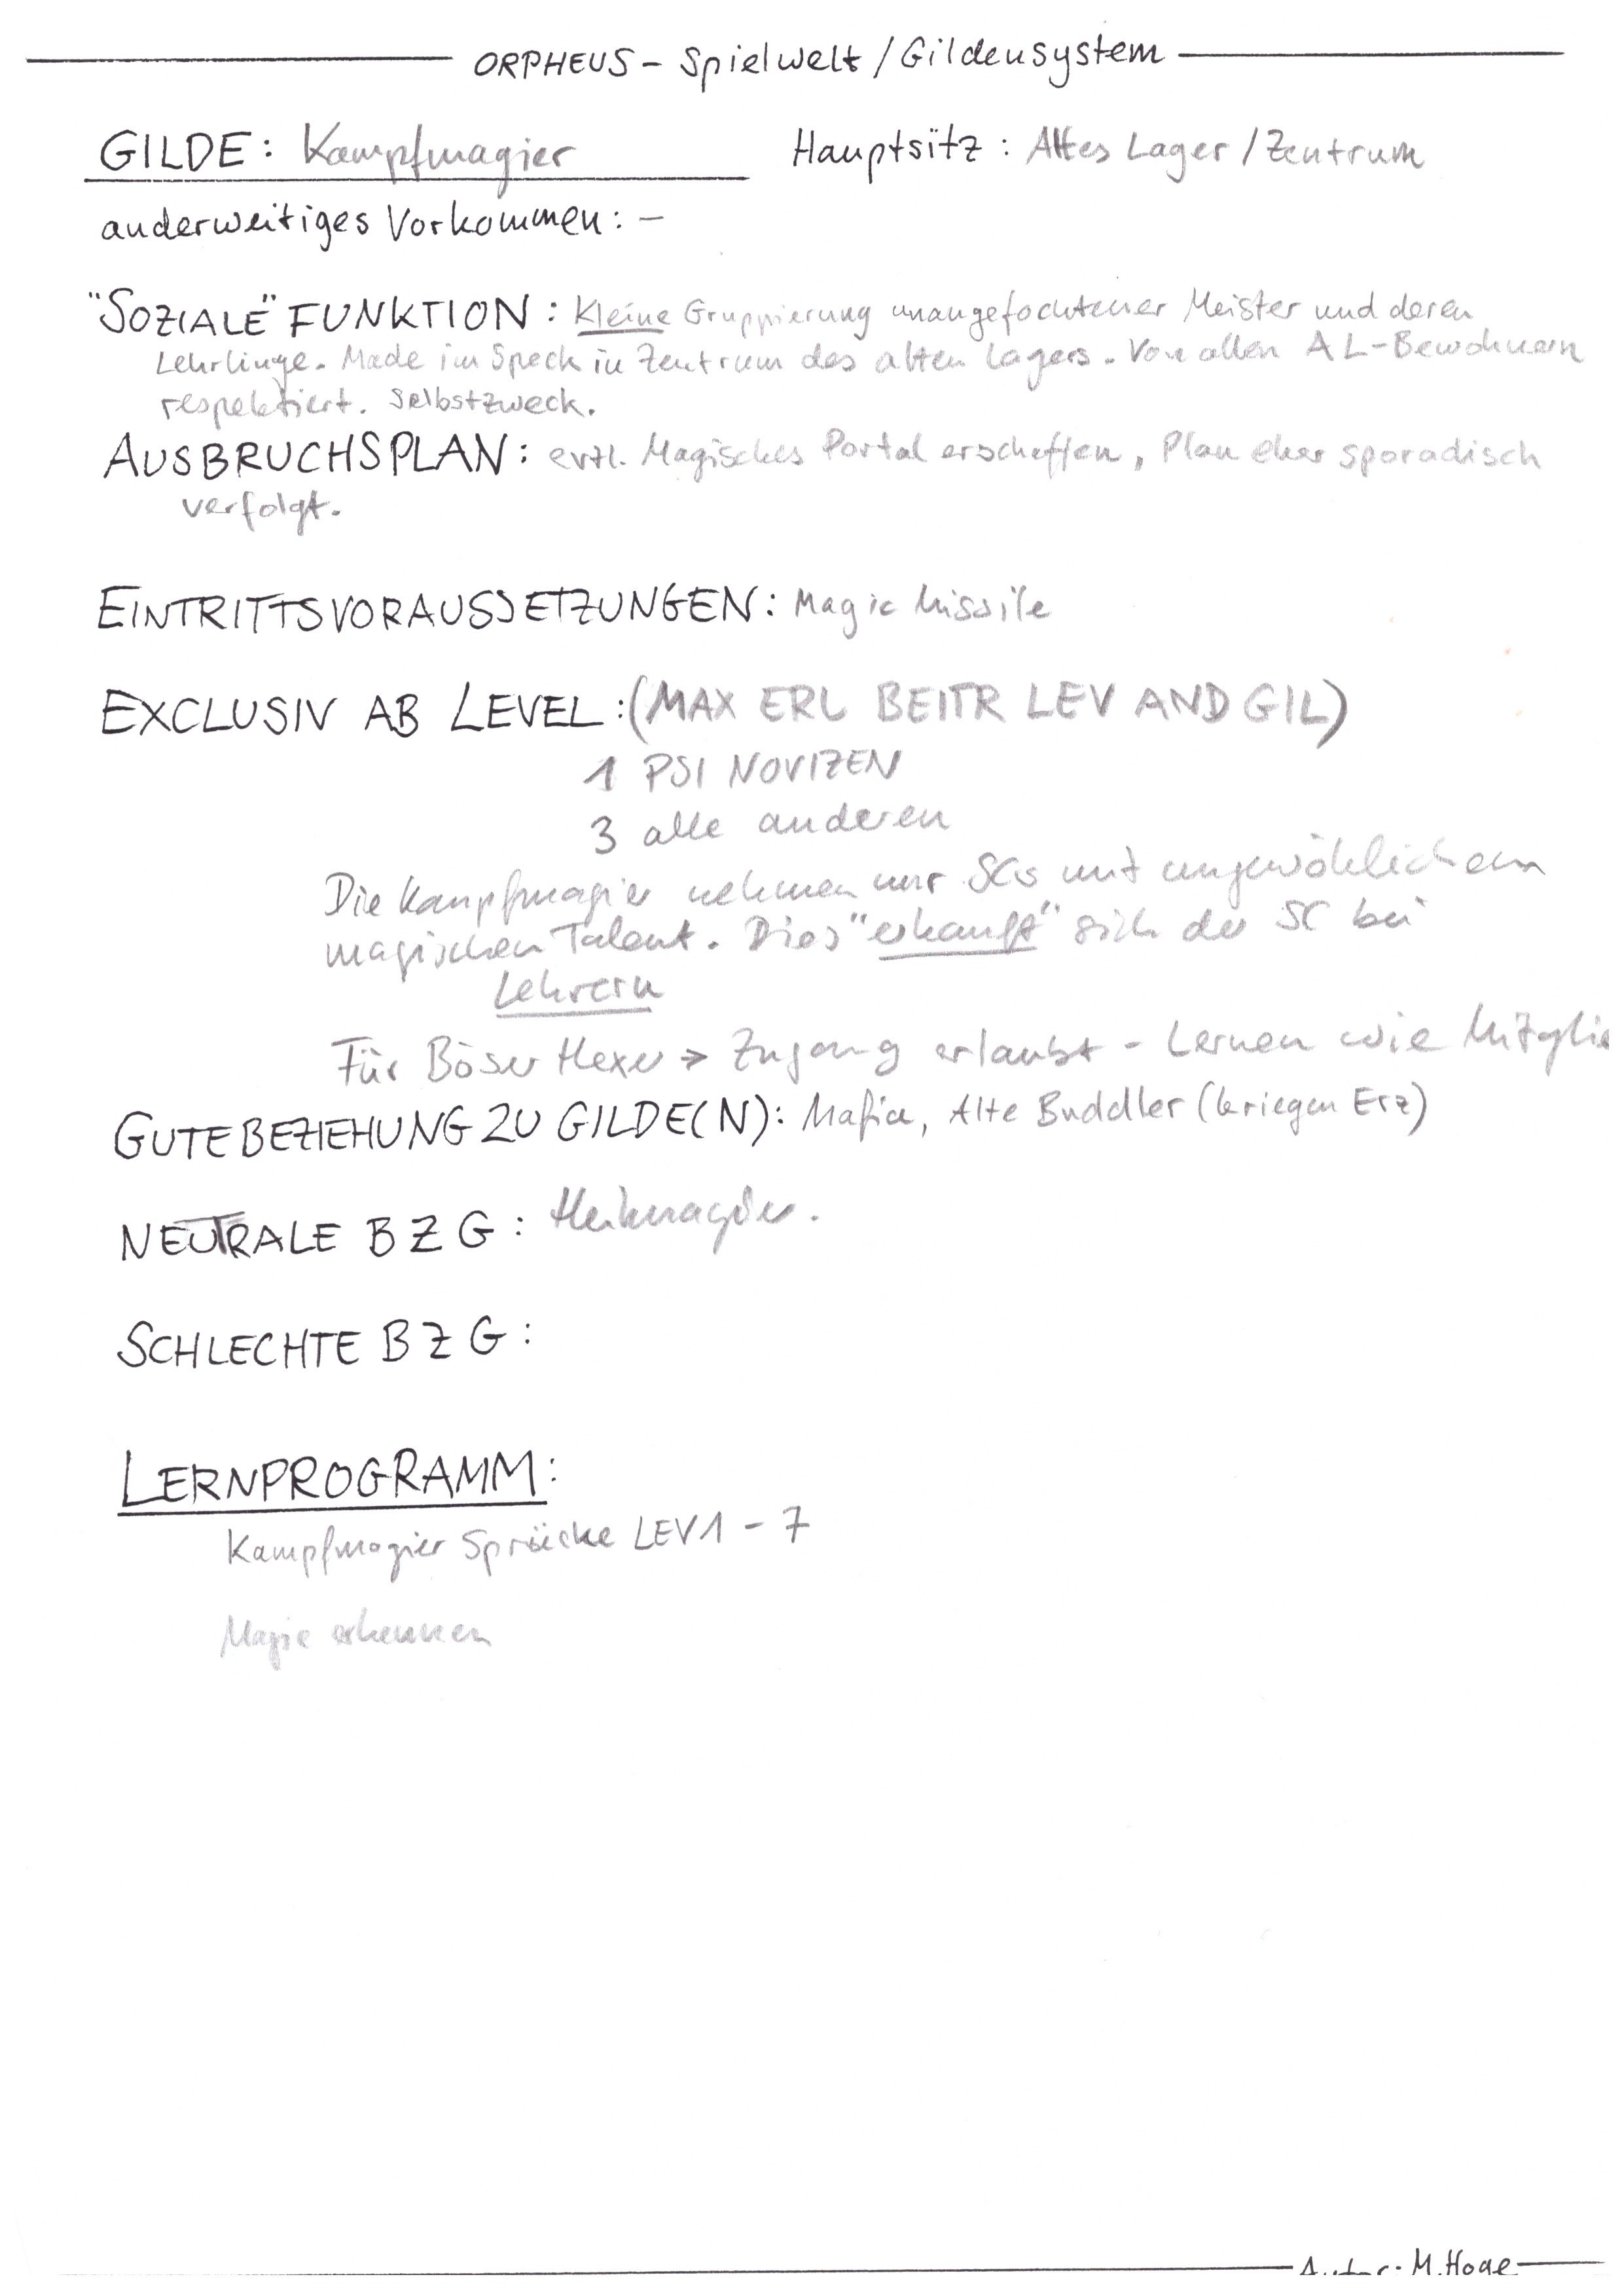 ORPHEUS - Spielwelt / Gildensystem
GILDE: Kampfmagier Hauptsitz: Altes Lager / Zentrum
anderweitiges Vorkommen: –
"SOZIALE" FUNKTION: Kleine Gruppierung unangefochtener Meister und deren
Lehrlinge. Made im Speck in Zentrum des alten Lagers. Von allen AL-Bewohnern
respektiert. Selbstzweck.
AUSBRUCHSPLAN: evtl. Magisches Portal erschaffen, Plan eher sporadisch
verfolgt.
EINTRITTSVORAUSSETZUNGEN: Magic Missile
EXCLUSIV AB LEVEL: (MAX ERL BEITR LEV AND GIL)
1 PSI NOVIZEN
3 alle anderen
Die Kampfmagier nehmen nur SCs mit ungewöhlichem
magischen Talent. Dies "erkauft" sich der SC bei
Lehrern
Für Böser Hexer → Zugang erlaubt - Lernen wie Mitglie
GUTE BEZIEHUNG ZU GILDE(N): Mafia, Alte Buddler (kriegen Erz)
NEUTRALE BZG: Heilmagier.
SCHLECHTE BZG:
LERNPROGRAMM:
Kampfmagier Sprüche LEV 1 - 7
Magie erkennen
Autor: M. Hoge